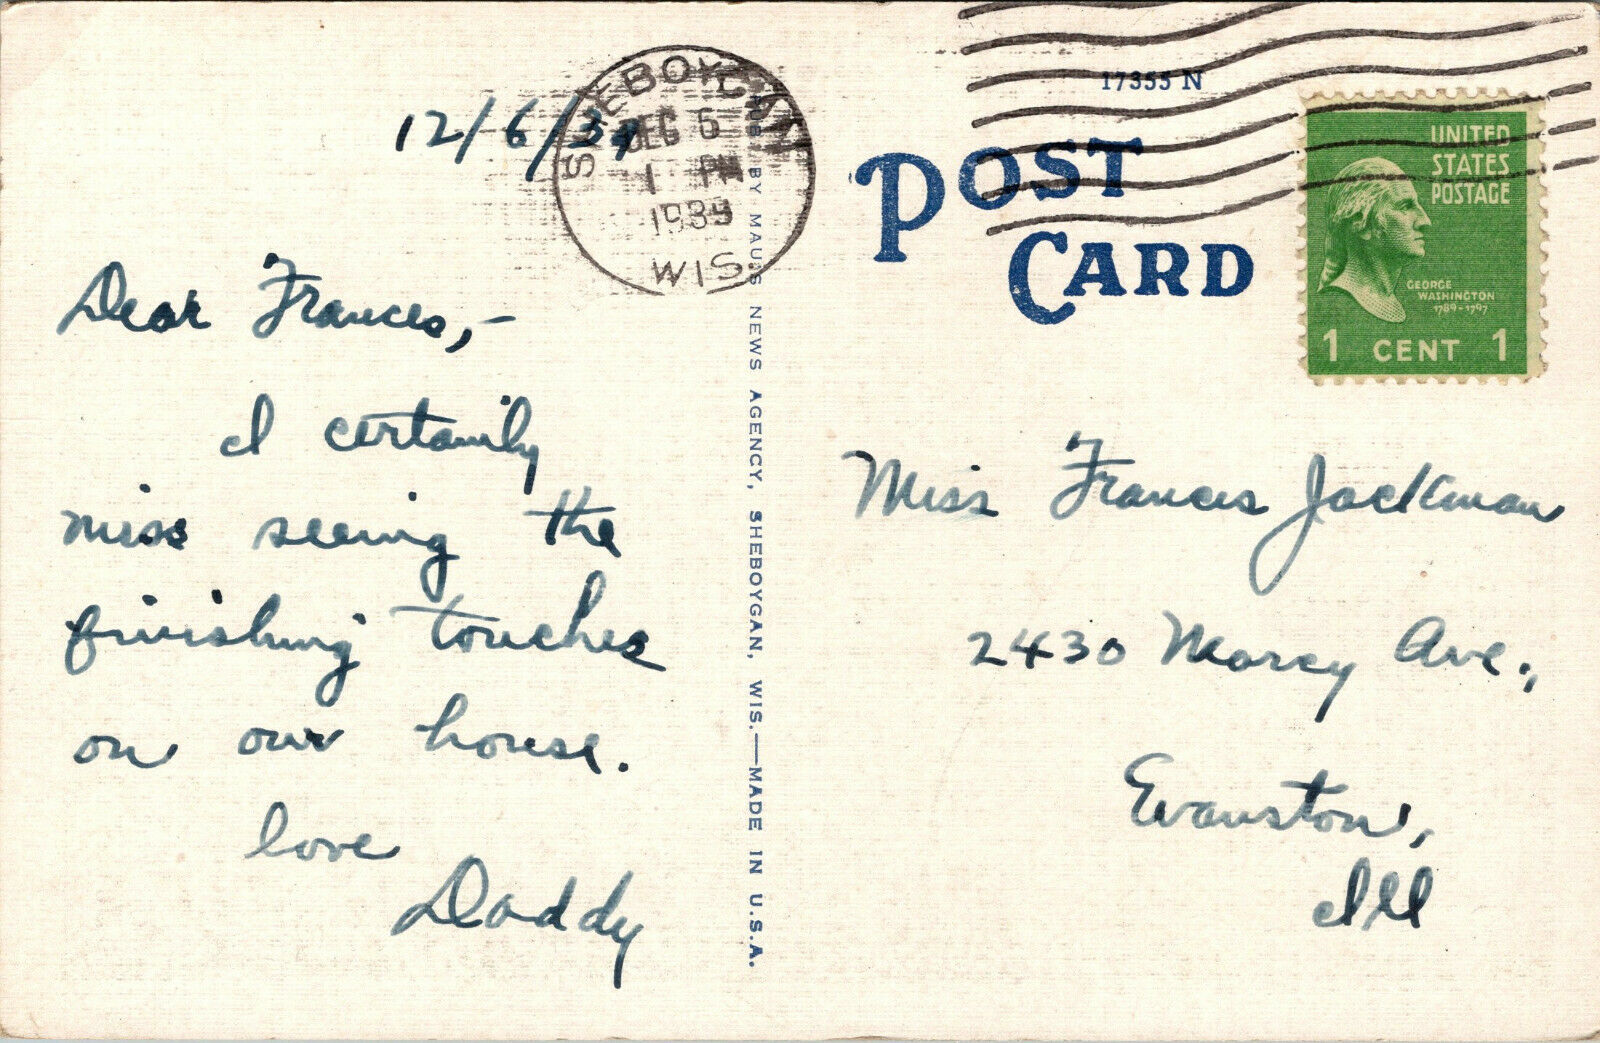 12/6/39
SHEBOYGAN
DEC 6
1 PM
1939
WIS.
Dear Frances,-
I certainly
miss seeing the
finishing touches
on our house.
love
Daddy
PUB. BY MAUS NEWS AGENCY, SHEBOYGAN, WIS.—MADE IN U.S.A.
17355 N
POST
CARD
UNITED
STATES
POSTAGE
GEORGE
WASHINGTON
1789-1797
1 CENT 1
Miss Frances Jackman
2430 Marcy Ave.,
Evanston,
Ill